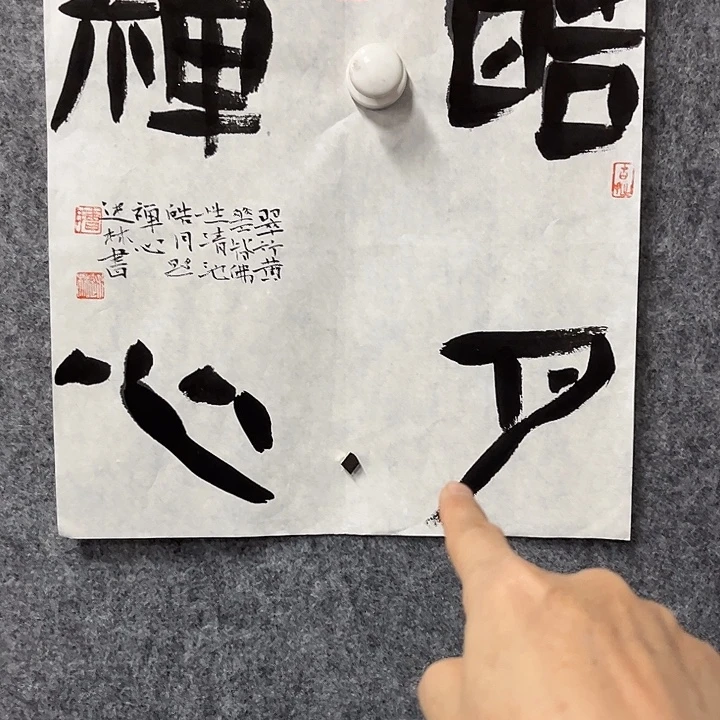 皓月
禪心
翠竹黃
華皆佛
性清池
皓月照
禪心
林書